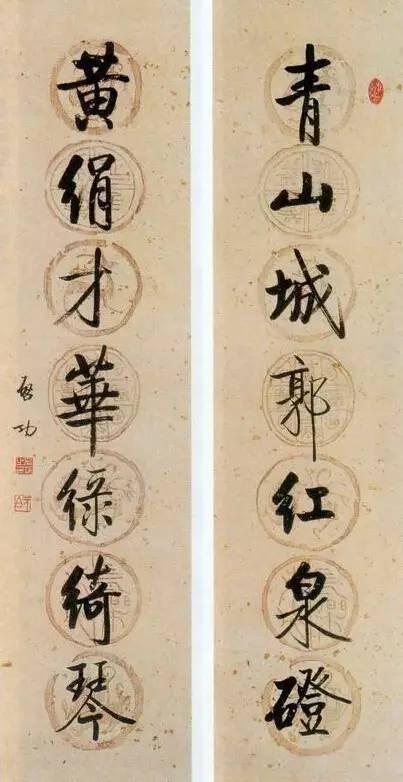 青山城郭红泉磴
黄绢才華綠綺琴
启功